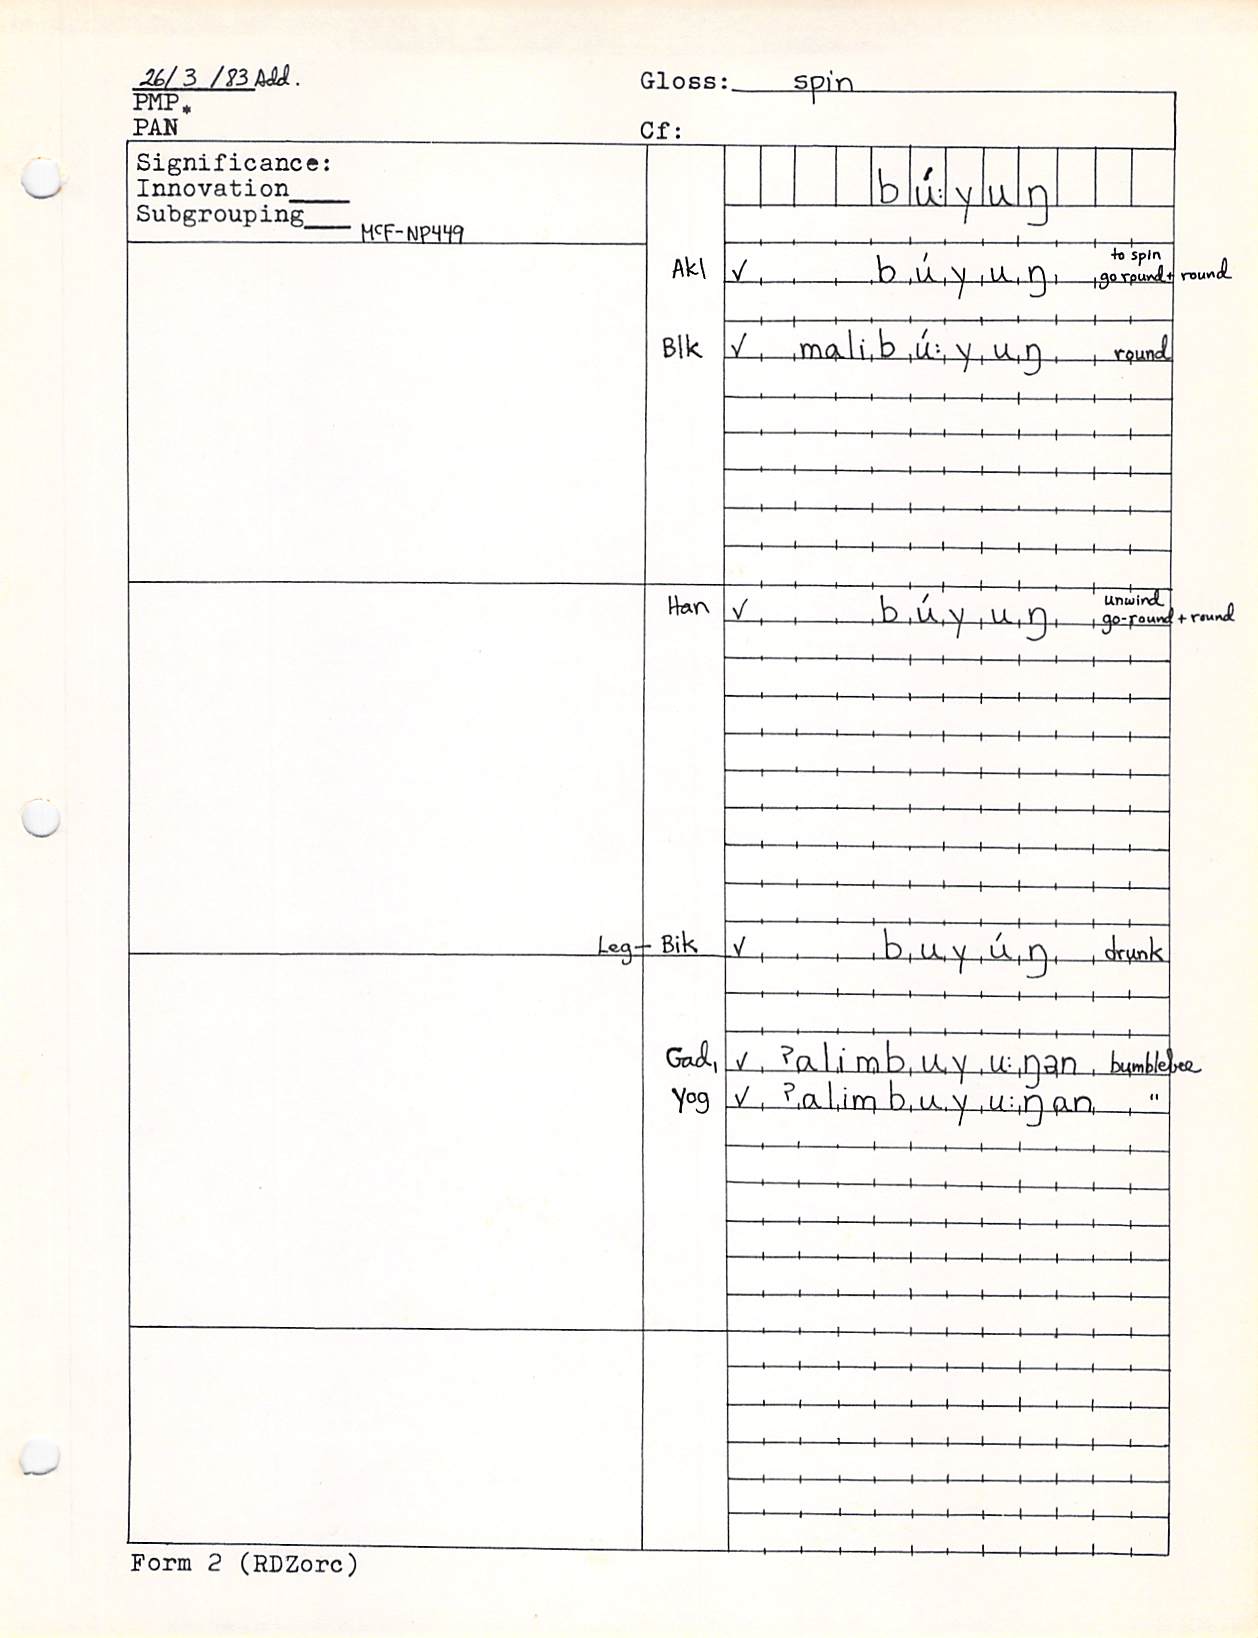 26/3/83 Add.
Gloss: spin
PMP*
PAN
Cf:
Significance:
Innovation
Subgrouping
McF-NP449
bú:yuŋ
Akl ✓ búyuŋ to spin
go round + round
Blk ✓ malibú:yuŋ round
Han ✓ búyuŋ unwind
go-round + round
Leg-Bik ✓ buyúŋ drunk
Gad, ✓ ʔalimbuyu:ŋən bumblebee
Yog ✓ ʔalimbuyu:ŋan "
Form 2 (RDZorc)